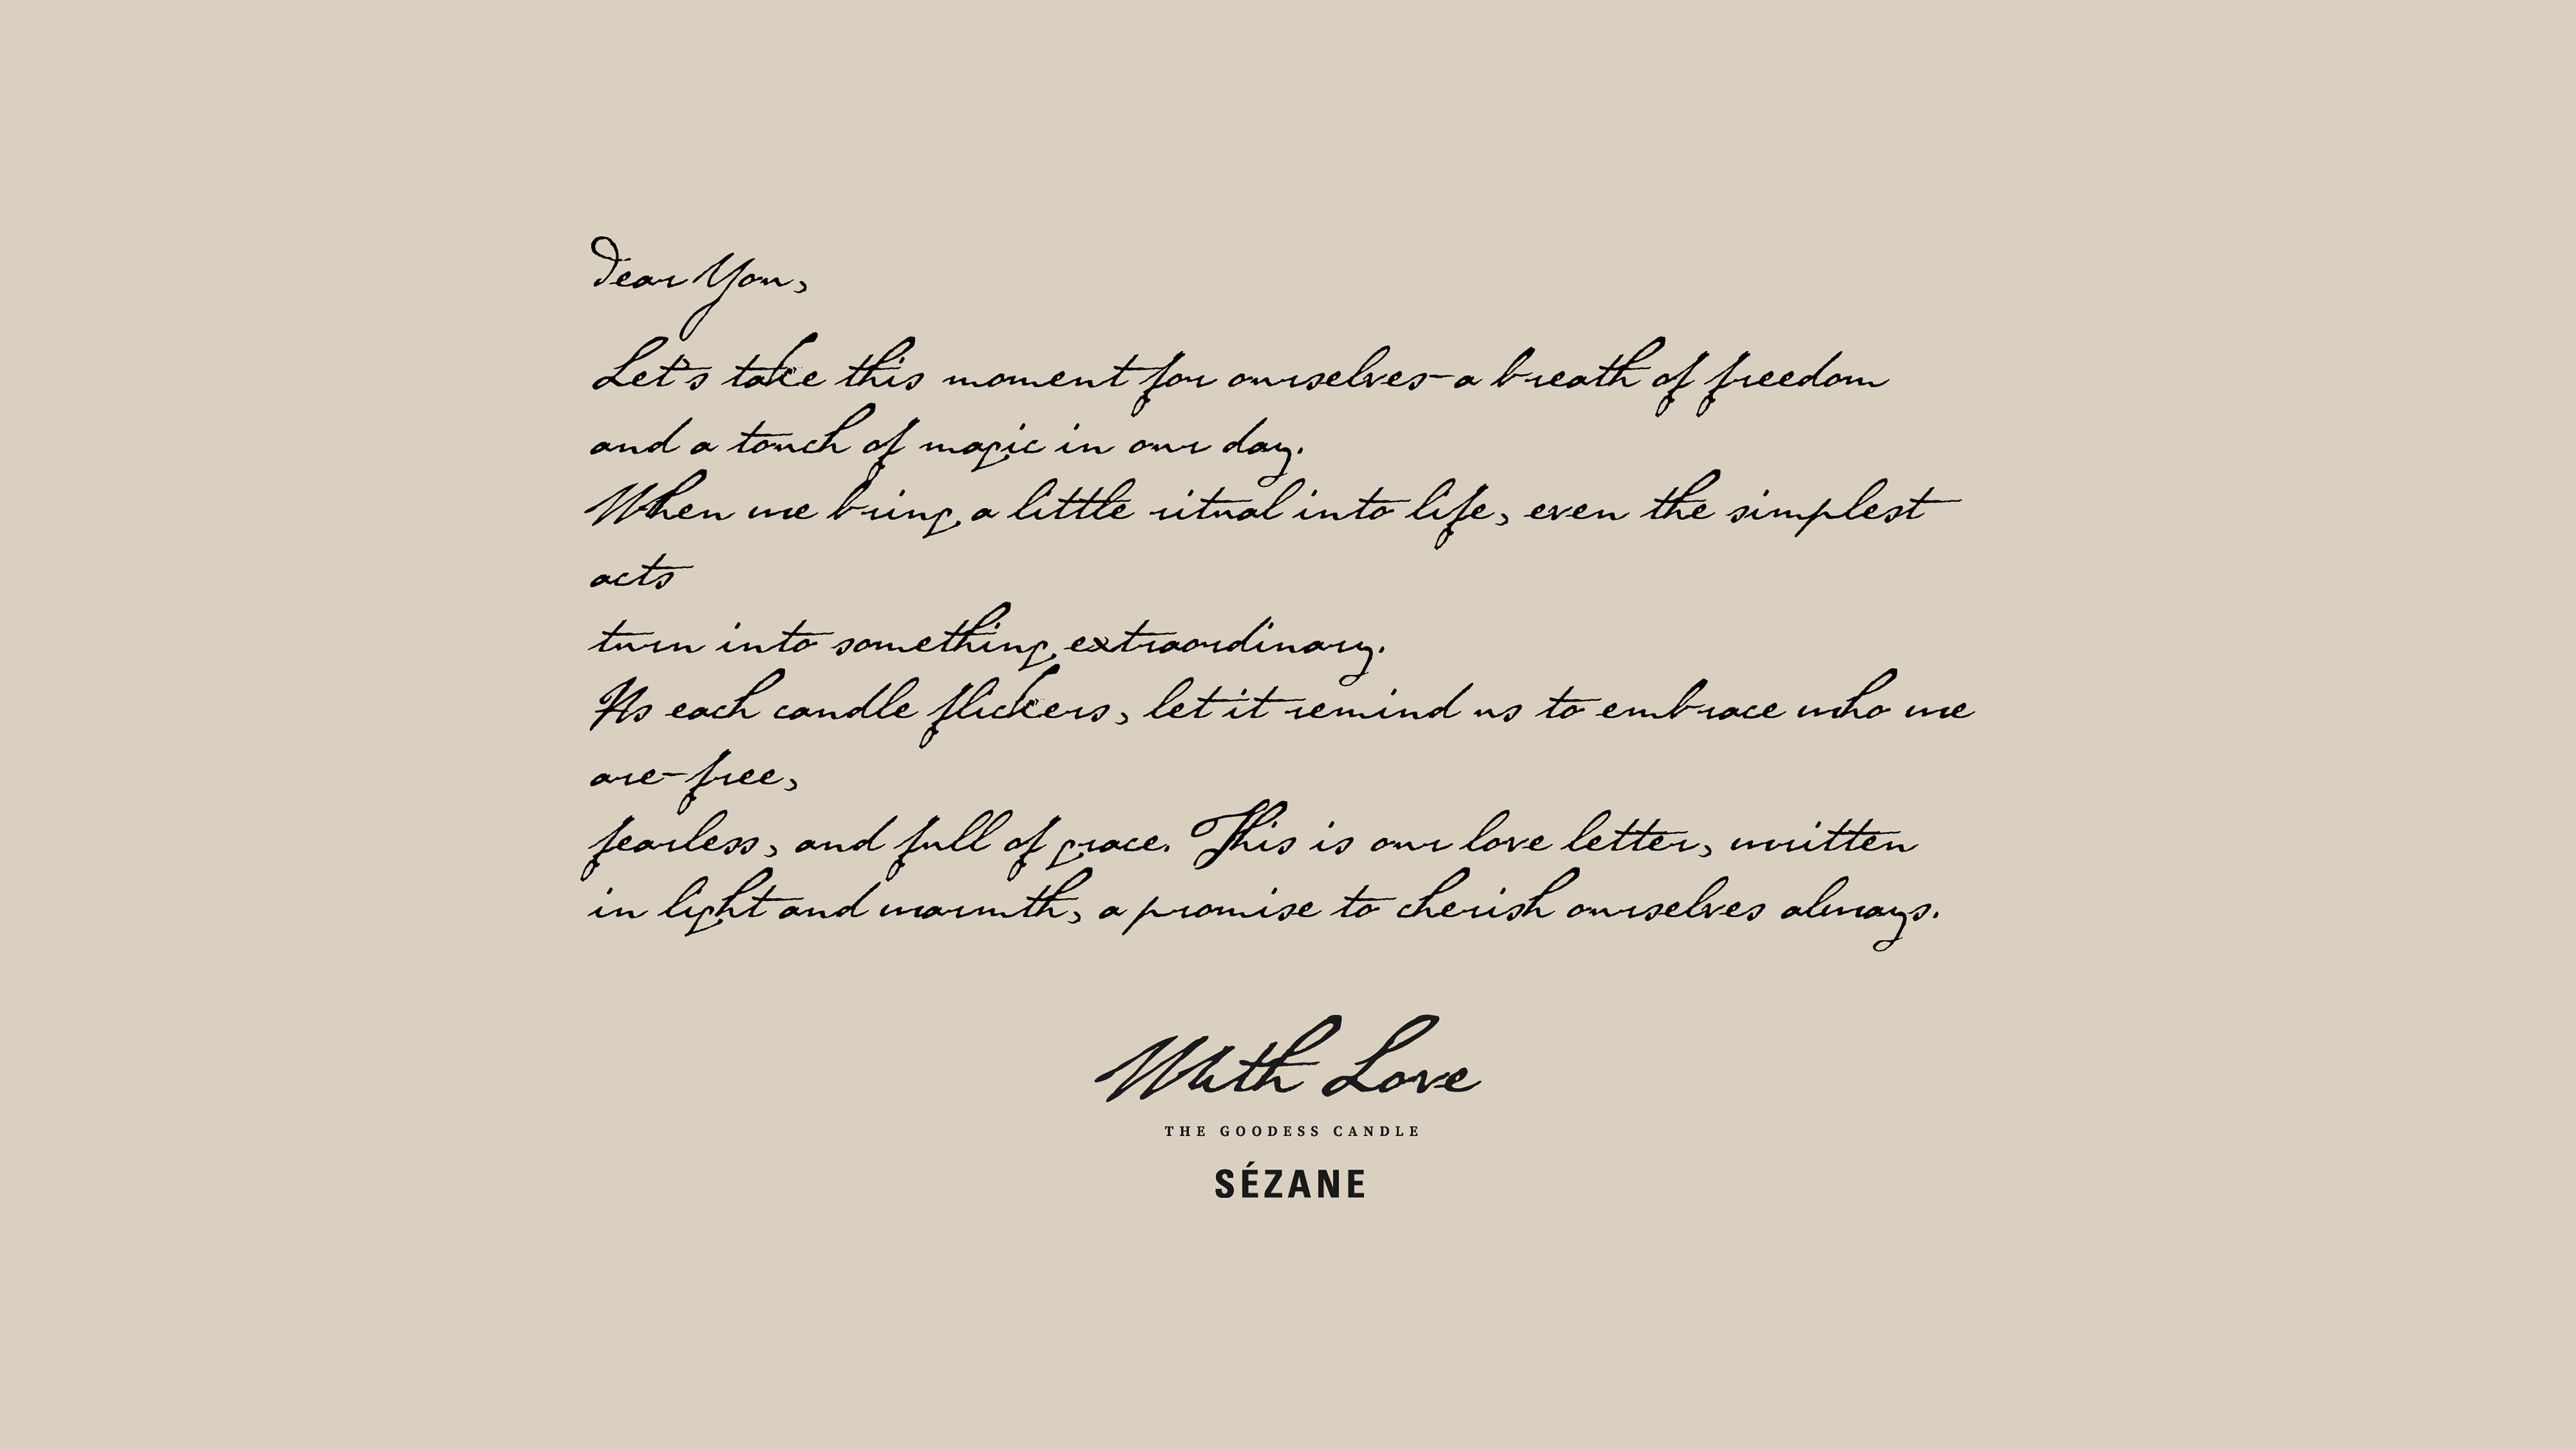 Dear You,
Let's take this moment for ourselves-a breath of freedom
and a touch of magic in our day.
When we bring a little ritual into life, even the simplest
acts
turn into something extraordinary.
As each candle flickers, let it remind us to embrace who we
are-free,
fearless, and full of grace. This is our love letter, written
in light and warmth, a promise to cherish ourselves always.
With Love
THE GOODESS CANDLE
SÉZANE